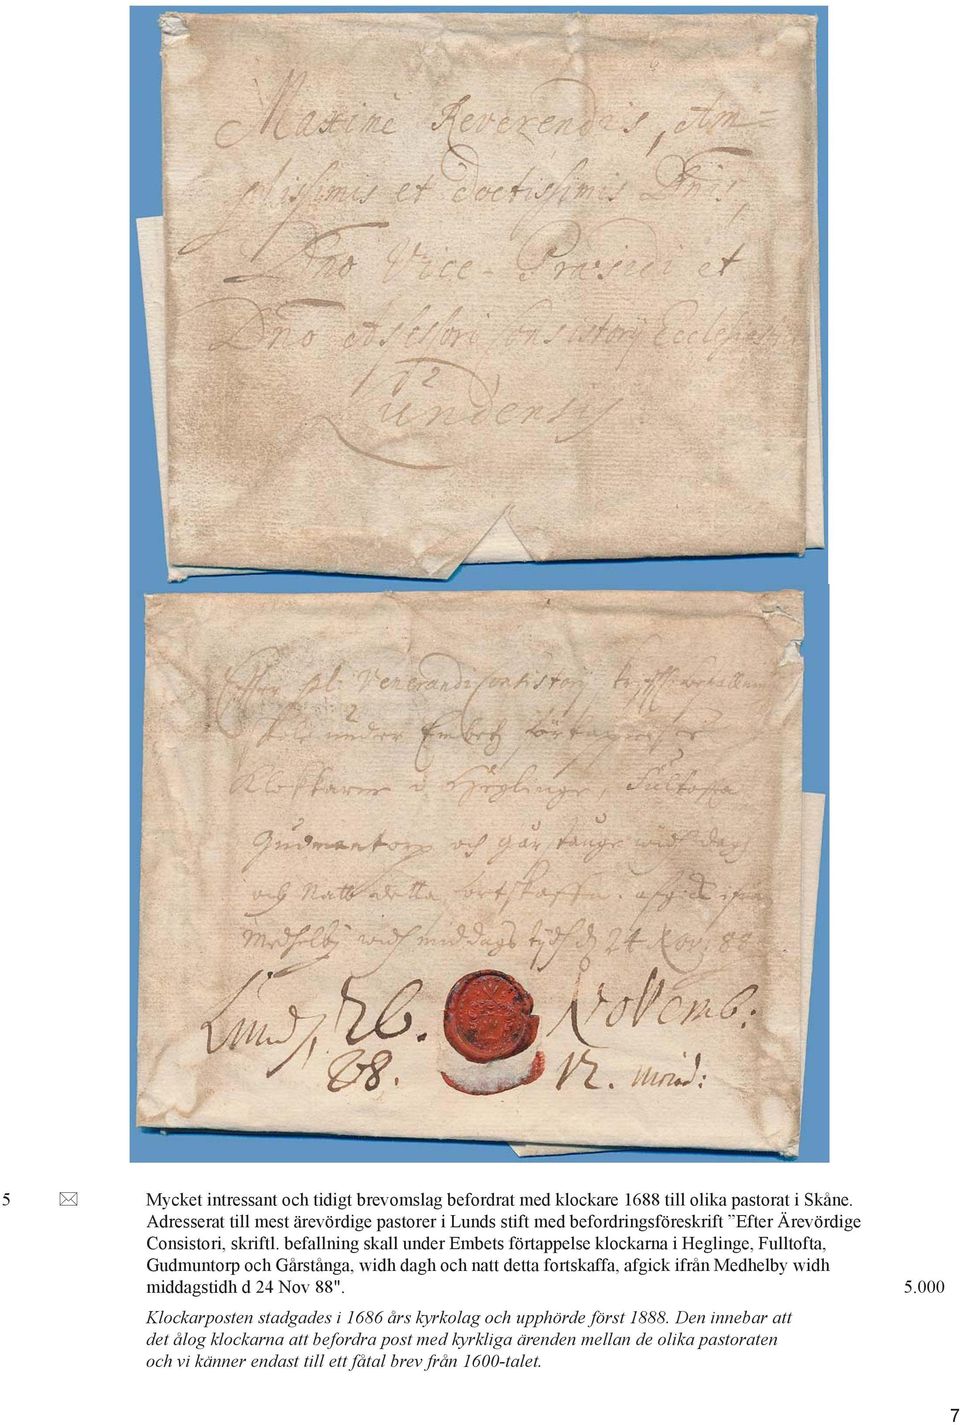 Maximè Reverendis, Am=
plissimis et Doctissimis Dnis,
Dno Vice-Præsidi et
Dno Assessori Consistorij Ecclesiastici
Lundensis
Efter pl: Venerandi Consistorij befallning
skole under Embetz förtapelse
Klockarne i Heglinge, Fultofta
Gudmuntorp och Gårstånge widh dagh
och Natt detta fortskaffa. afgick ifrån
Medhelby widh middags tijdh d 24 Nov: 88
Lund, 26. Novemb:
88. 12. mörid:
5 Mycket intressant och tidigt brevomslag befordrat med klockare 1688 till olika pastorat i Skåne.
Adresserat till mest ärevördige pastorer i Lunds stift med befordringsföreskrift ”Efter Ärevördige
Consistori, skriftl. befallning skall under Embets förtappelse klockarna i Heglinge, Fulltofta,
Gudmuntorp och Gårstånga, widh dagh och natt detta fortskaffa, afgick ifrån Medhelby widh
middagstidh d 24 Nov 88". 5.000
Klockarposten stadgades i 1686 års kyrkolag och upphörde först 1888. Den innebar att
det ålog klockarna att befordra post med kyrkliga ärenden mellan de olika pastoraten
och vi känner endast till ett fåtal brev från 1600-talet.
7